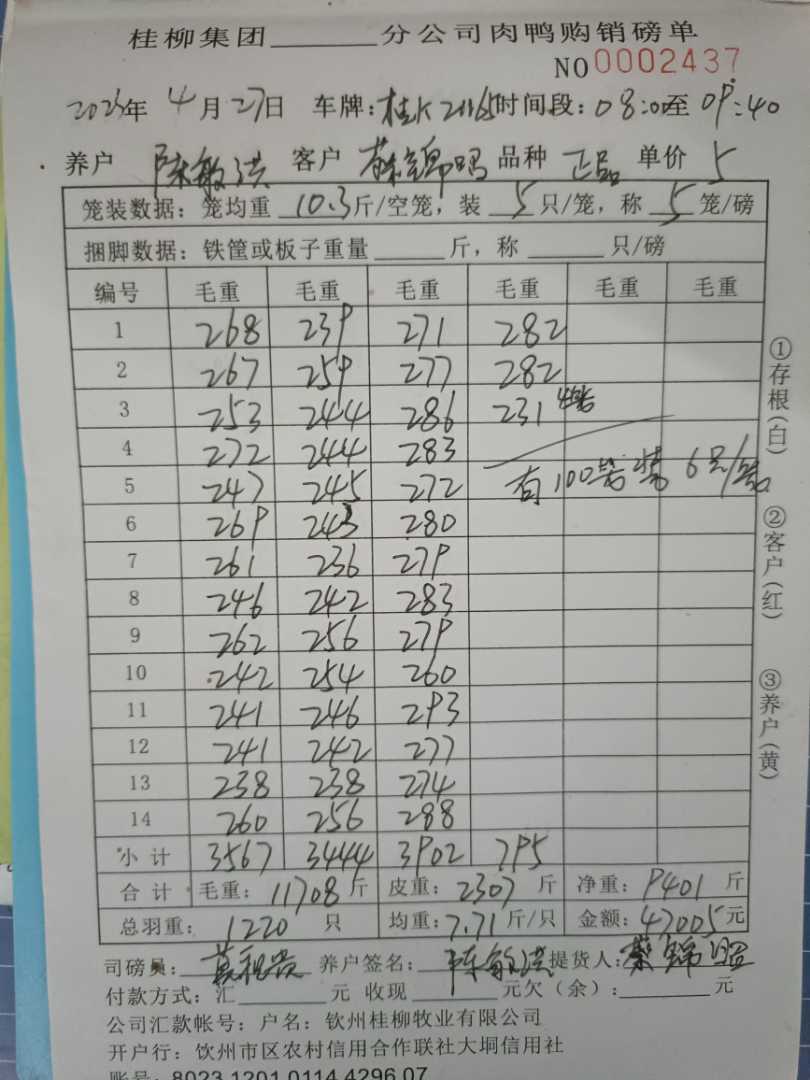 桂柳集团______分公司肉鸭购销磅单
NO 0002437
2025年 4月27日 车牌:桂K2H65 时间段:08:00至09:40
养户 陈敏洪 客户 蔡锦明 品种 正品 单价 5
笼装数据:笼均重 10.3 斤/空笼,装 5 只/笼,称 5 笼/磅
捆脚数据:铁筐或板子重量______斤,称______只/磅
编号 毛重 毛重 毛重 毛重 毛重 毛重
1 268 239 271 282
2 267 259 277 282
3 253 244 286 231 4笼
4 272 244 283
5 247 245 272 有100笼装6只/笼
6 269 243 280
7 261 236 279
8 246 242 283
9 262 256 279
10 242 254 260
11 241 246 293
12 241 242 277
13 238 238 274
14 260 256 288
小计 3567 3444 3902 795
合计 毛重:11708斤 皮重:2307斤 净重:9401斤
总羽重:1220只 均重:7.71斤/只 金额:47005元
司磅员: 养户签名:陈敏洪 提货人:蔡锦
付款方式:汇______元 收现______元欠(余):______元
公司汇款帐号:户名:钦州桂柳牧业有限公司
开户行:饮州市区农村信用合作联社大垌信用社
账号:8023 1201 0114 4296 07
①存根(白)
②客户(红)
③养户(黄)